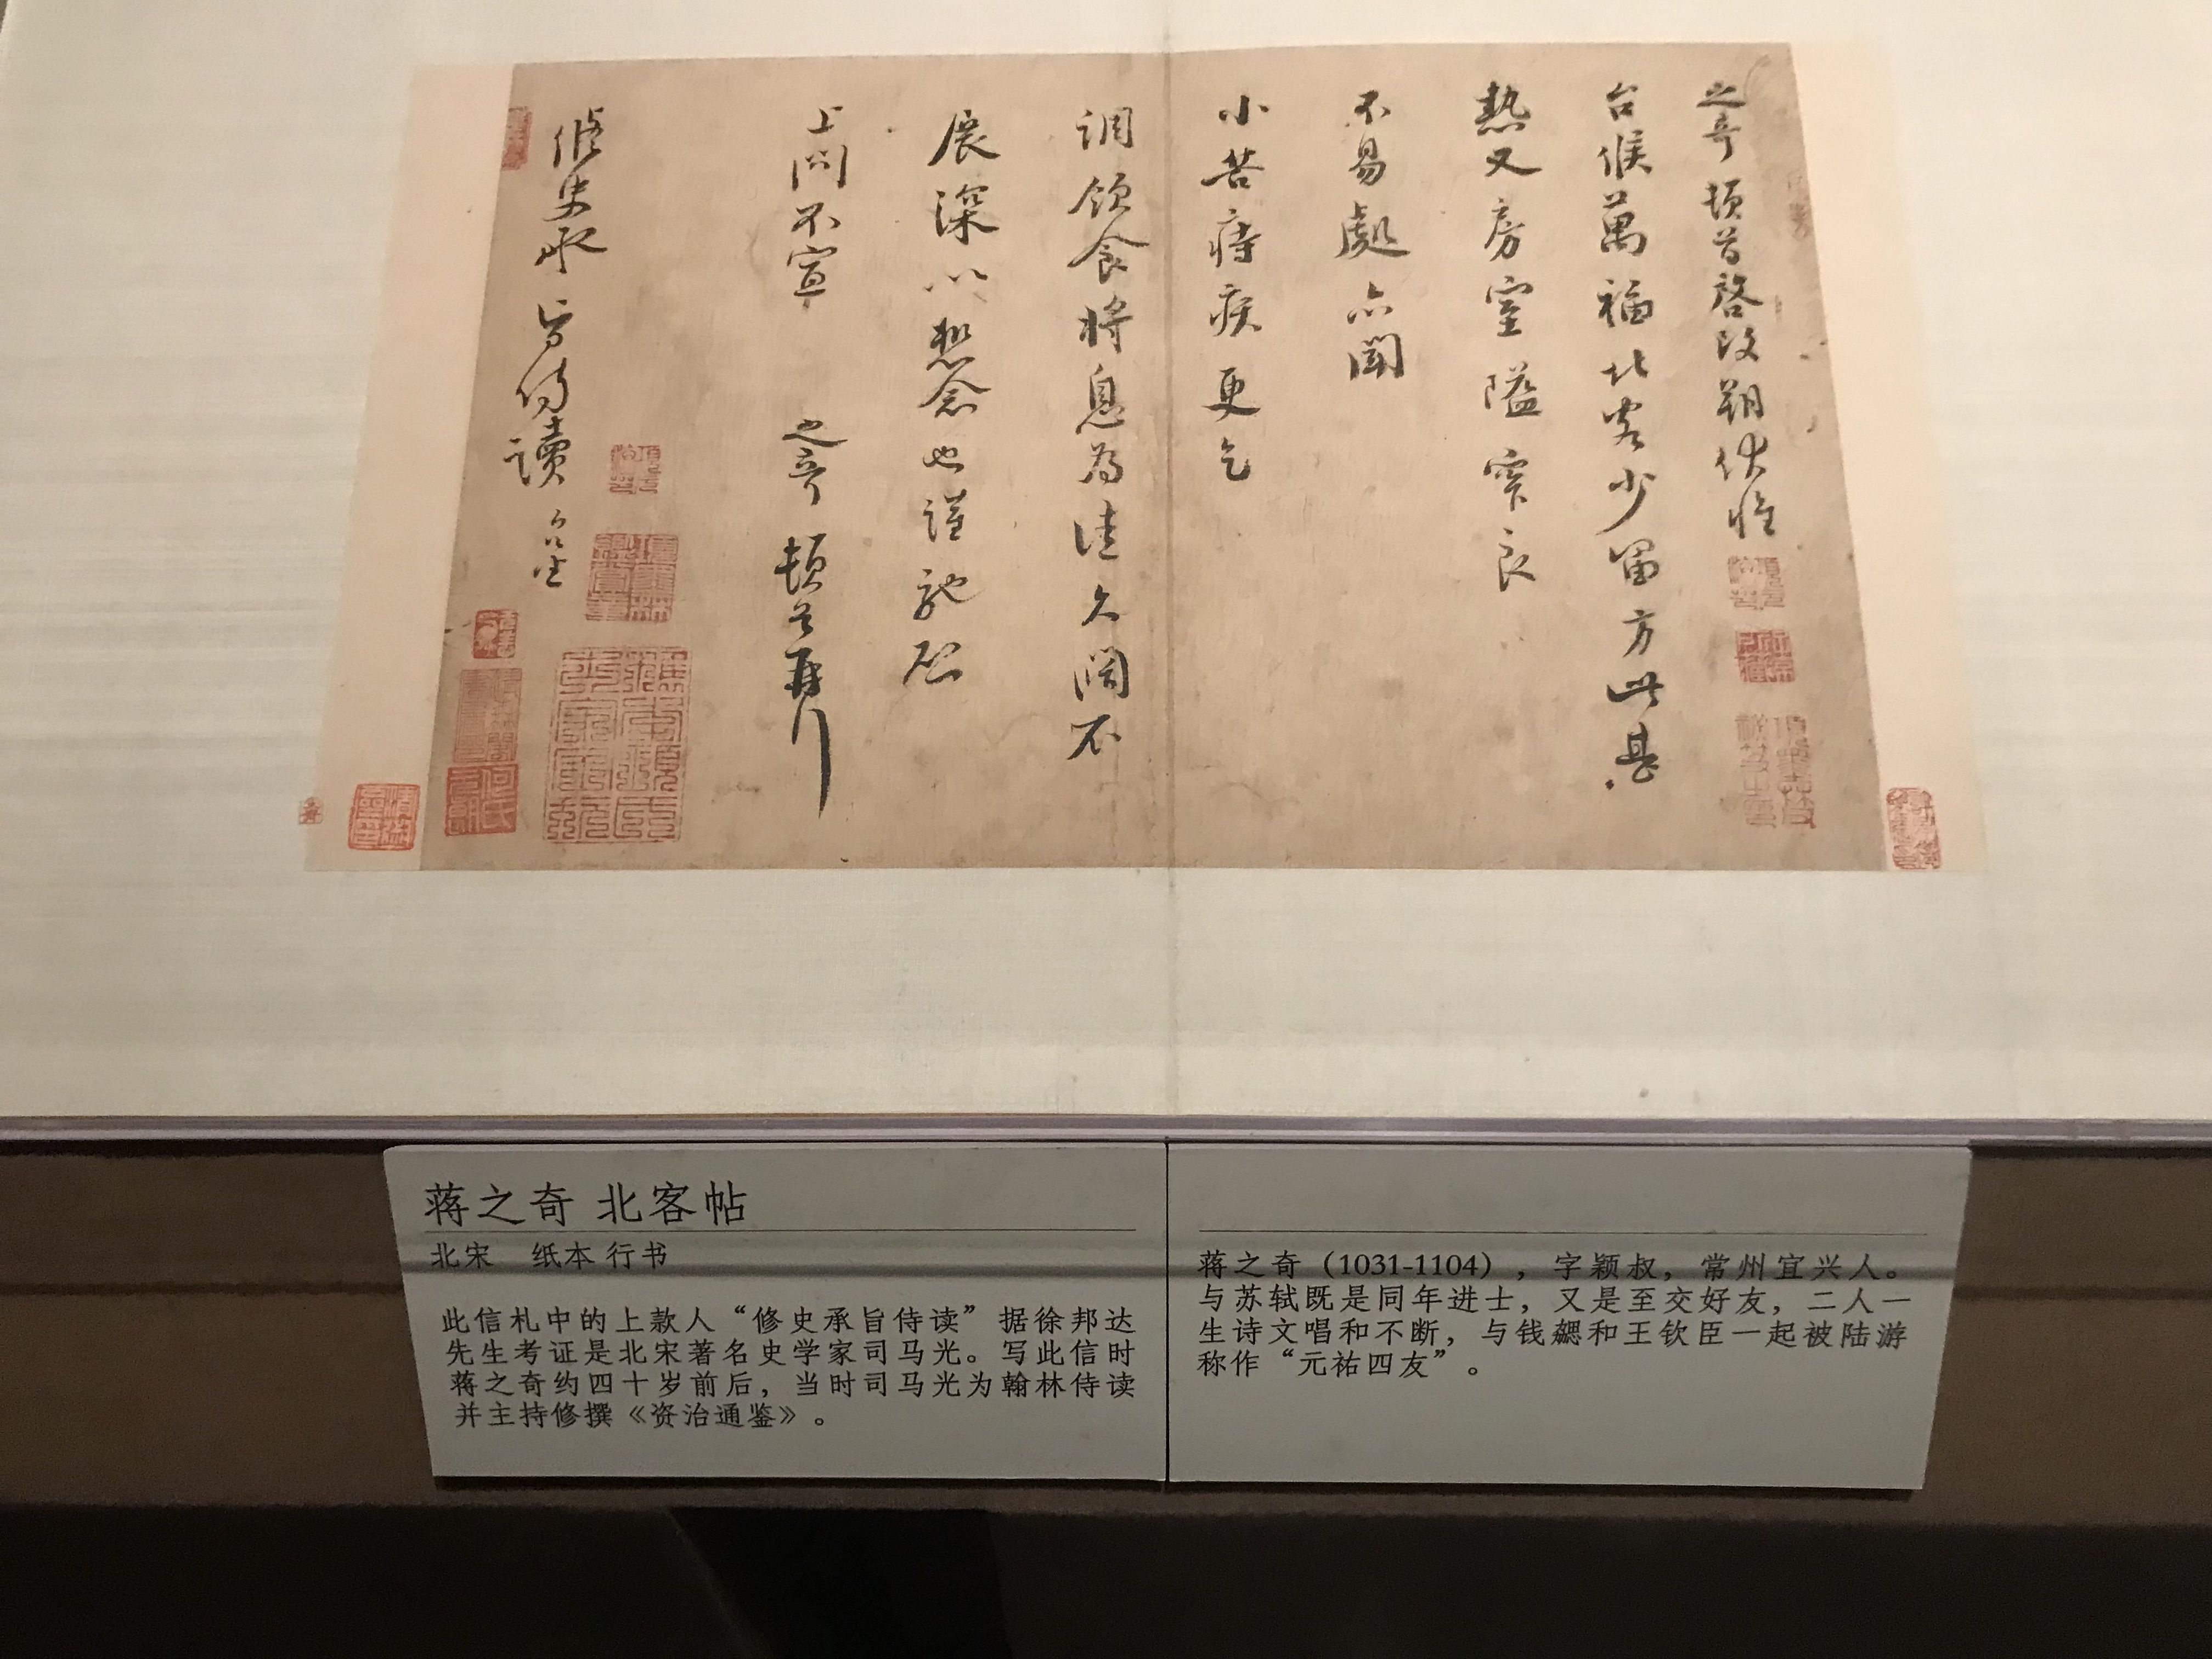 之奇頓首啓改朔伏惟
台候萬福北客少留方此甚
熱又房室隘窄良
不易處亦聞
小苦痔疾更乞
調飲食將息為佳久闊不
展深以愁念也謹馳啓
上問不宣 之奇頓首再行
修史承旨侍讀 台坐
蒋之奇 北客帖
北宋 纸本 行书
此信札中的上款人“修史承旨侍读”据徐邦达
先生考证是北宋著名史学家司马光。写此信时
蒋之奇约四十岁前后，当时司马光为翰林侍读
并主持修撰《资治通鉴》。
蒋之奇（1031-1104），字颖叔，常州宜兴人。
与苏轼既是同年进士，又是至交好友，二人一
生诗文唱和不断，与钱勰和王钦臣一起被陆游
称作“元祐四友”。